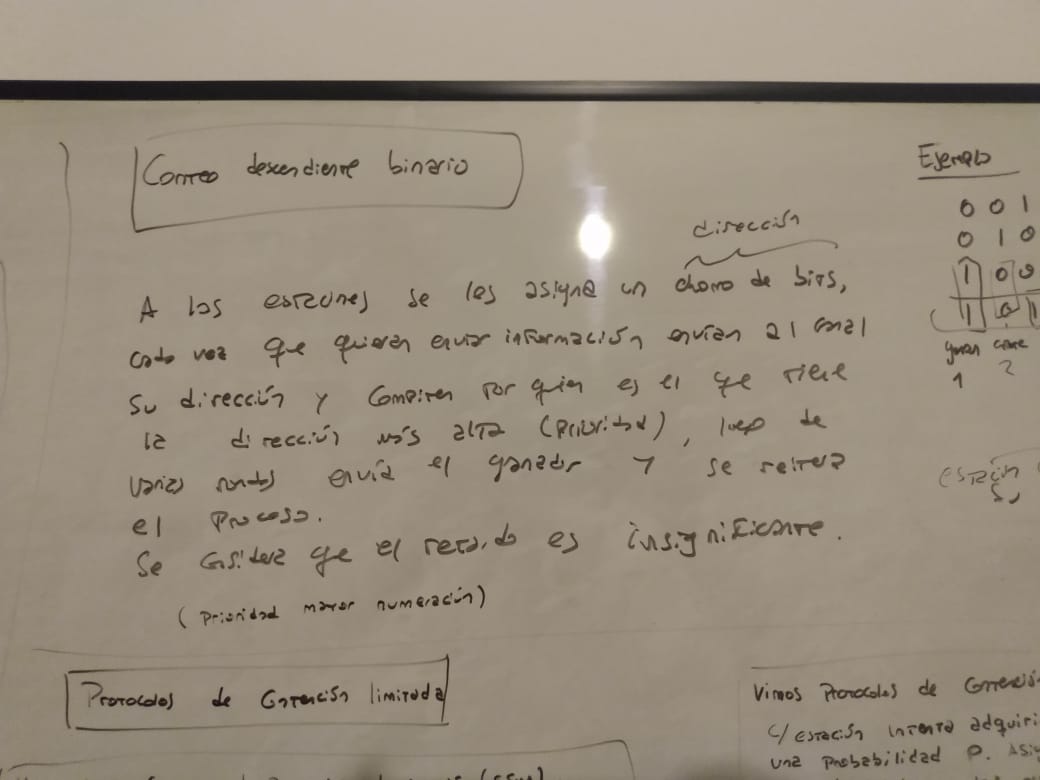 Conteo descendiente binario
dirección
A las estaciones se les asigna un chorro de bits,
cada vez que quieren enviar información envían al canal
su dirección y compiten por quien es el que tiene
la dirección más alta (prioridad), luego de
varias rondas envía el ganador y se reitera
el proceso.
Se considera que el retardo es insignificante.
(prioridad mayor numeración)
Ejemplo
0 0 1
0 1 0
1 0 0
1 0 1
1 2
Protocolos de Contención limitada
Vimos Protocolos de
c/ estación intenta adquiri
una probabilidad P.